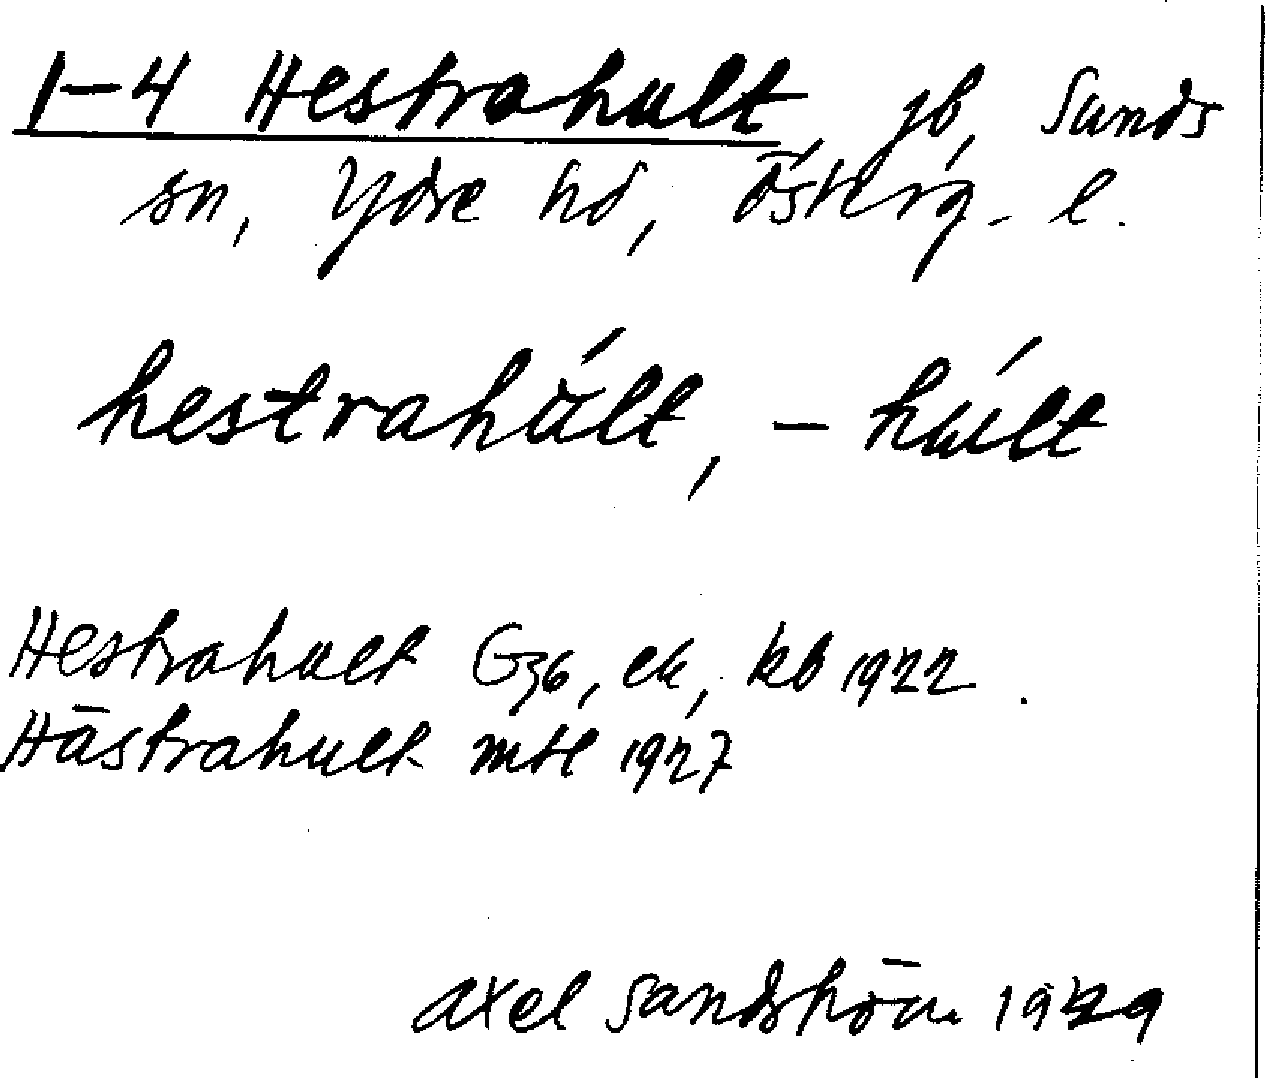 1-4 Hestrahult, jb, Sunds
sn, Ydre hd, Österg. l.
hestrahúlt, - húlt
Hestrahult G36, ek, kb 1922.
Hästrahult mtl 1927
Axel Sandström 1929